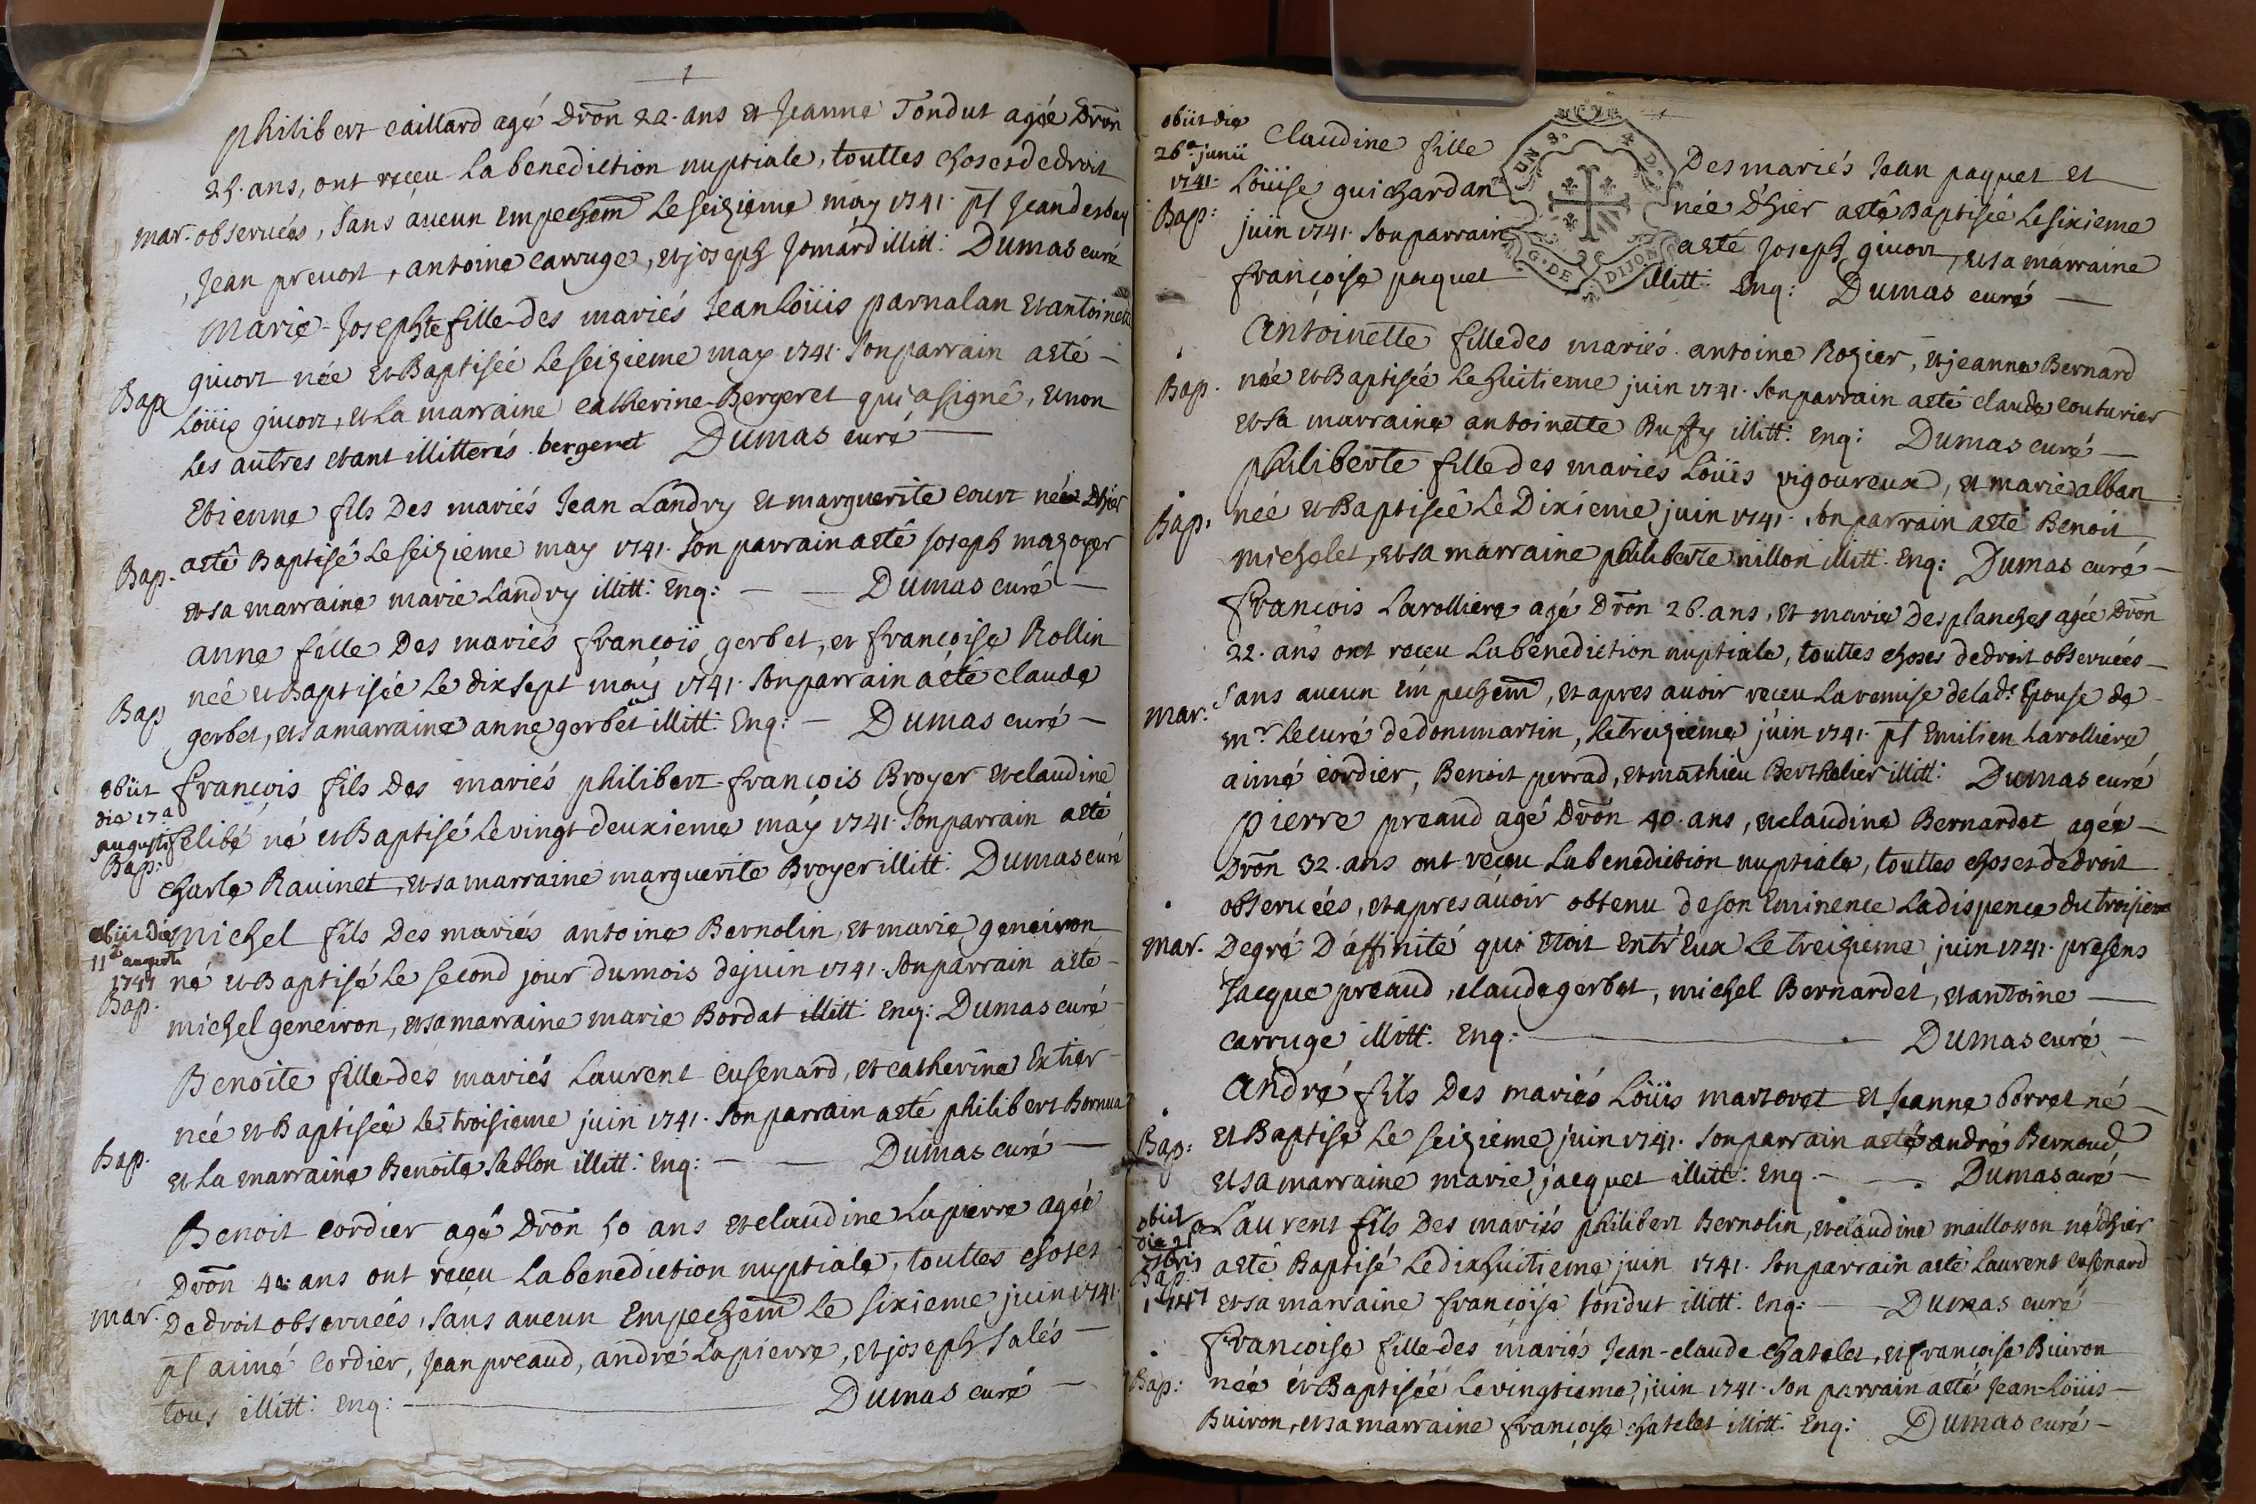 philibert caillard agé dron 22. ans et Jeanne Tondut agée dron
25. ans, ont receu la benediction nuptiale, touttes choses de droit
mar. observées, sans aucun empechem le seizieme may 1741. pt Jean derbey
Jean prevort, antoine carruge, et joseph Jomard illitt: Dumas curé
marie-Josephte fille des mariés Jean Loüis parnalan et antoinette
givort née et Baptisée le seizieme may 1741. son parrain a eté
Bap Loüis givort, et la marraine catherine Bergeret qui a signé, et non
les autres etant illitterés. bergeret Dumas curé
Etienne fils des mariés Jean Landry et marguerite court né d'hier
Bap. a eté Baptisé le seizieme may 1741. son parrain a eté joseph mazoyer
et sa marraine marie Landry illitt: Enq: Dumas curé
anne fille des mariés françois gerbet, et françoise Rollin
Bap née et Baptisée le dix sept may 1741. son parrain a eté claude
gerbet, et sa marraine anne gerbet illitt. Enq: Dumas curé
obiit die 17a augusti
françois fils des mariés philibert-françois Broyer et claudine
felibé né et Baptisé le vingt-deuxieme may 1741. son parrain a eté
Bap: charle Ravinet, et sa marraine marguerite Broyer illitt: Dumas curé
obiit die 11a augusti 1747
michel fils des mariés antoine Bernolin, et marie geneivron
né et Baptisé le second jour du mois de juin 1741. son parrain a eté
Bap. michel geneiron, et sa marraine marie Bordat illitt: Enq: Dumas curé
Benoite fille des mariés Laurent cusenard, et catherine Extier
née et Baptisée le troisieme juin 1741. son parrain a eté philibert
Bap. et la marraine Benoite Sablon illitt: Enq: Dumas curé
Benoit cordier agé dron 50 ans et claudine Lapierre agée
dron 42. ans ont receu la benediction nuptiale, touttes choses
mar. de droit observées, sans aucun Empechem le sixieme juin 1741.
pt aimé cordier, Jean preaud, andré Lapierre, et joseph Salés
tous illitt: Enq: Dumas curé
obiit die 26a junii 1741.
Claudine fille Des mariés Jean paquet et
Bap: Loüise guichardan née d'hier a eté Baptisée le sixieme
juin 1741. son parrain a eté Joseph givort, et sa marraine
françoise paquet illitt: Enq: Dumas curé
UN S. 4 D.
G. DE DIJON
Antoinette fille des mariés antoine Rozier, et jeanne Bernard
Bap. née et Baptisée le huitieme juin 1741. son parrain a eté claude couturier
et sa marraine antoinette Buffy illitt: Enq: Dumas curé
philiberte fille des mariés Loüis vigoureux, et marie alban
Bap. née et Baptisée le Dixieme juin 1741. son parrain a eté Benoit
micholet, et sa marraine philiberte nillon illitt. Enq: Dumas curé
françois Larolliere agé dron 26. ans, et marie Desplanches agée dron
22. ans ont receu la benediction nuptiale, touttes choses de droit observées
mar. sans aucun empechem, et apres avoir receu la remise de lad: Epouse de
mr. le curé de dommartin, le treizieme juin 1741. pt Emilien Larolliere
aimé cordier, Benoit perrad, et mathieu Berthelier illitt: Dumas curé
pierre preaud agé dron 40. ans, et claudine Bernardet agée
dron 32. ans ont receu la benediction nuptiale, touttes choses de droit
observées, et apres avoir obtenu de son Eminence la dispence du troisieme
mar. Degré D'affinité qui etoit entr'Eux le treizieme juin 1741. presens
Jacque preaud, claude gerbet, michel Bernardet, et antoine
carruge illitt. Enq: Dumas curé
andré fils des mariés Loüis martoret et Jeanne borret né
Bap: et Baptisé le seizieme juin 1741. son parrain a eté andré Bernoud
et sa marraine marie jacquet illitt: Enq. Dumas curé
obiit die 2a 7bris 1747
Laurent fils Des mariés philibert Bernolin, et claudine maillosson né d'hier
Bap. a eté Baptisé le dixhuitieme juin 1741. son parrain a eté Laurent cusenard
et sa marraine françoise tondut illitt: Enq: Dumas curé
françoise fille des mariés Jean-claude chatelet, et françoise Buiron
Bap: née et Baptisée le vingtieme juin 1741. son parrain a eté Jean-Loüis
Buiron, et sa marraine françoise chatelet illitt: Enq: Dumas curé